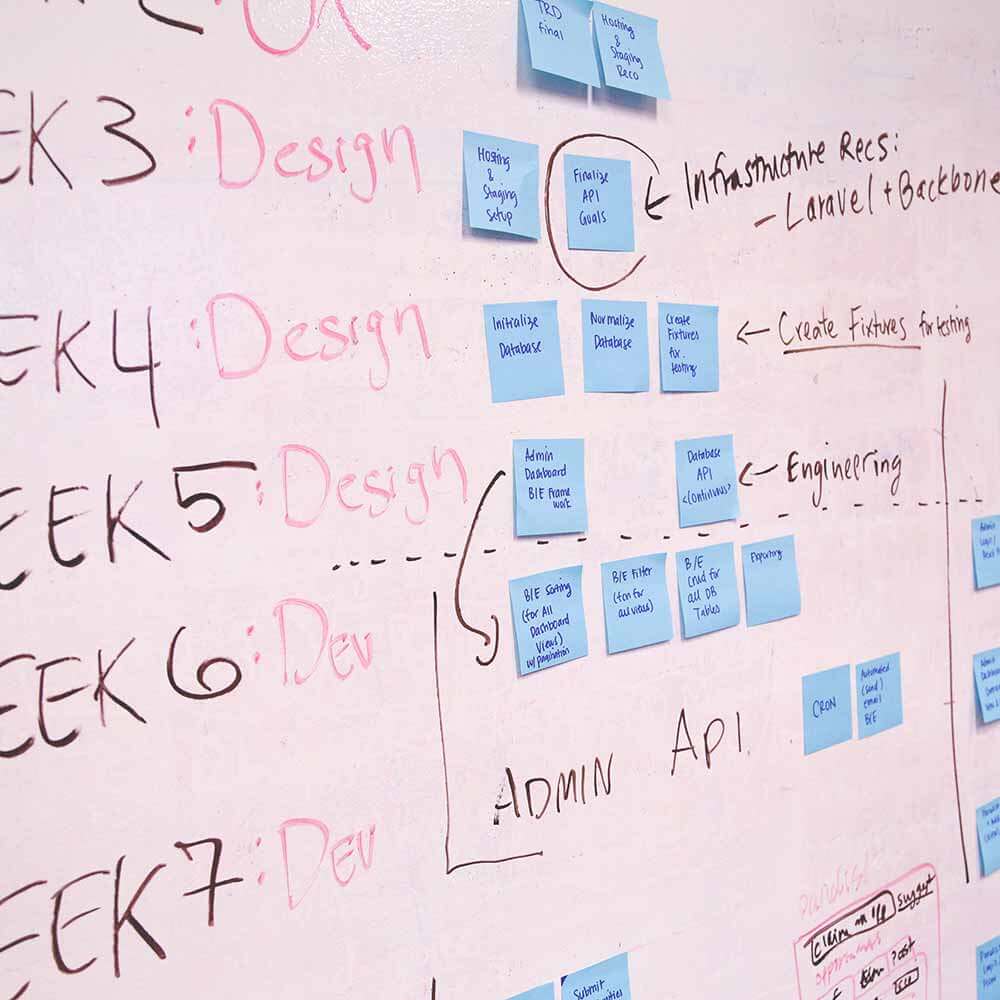 TRD
final
Hosting
&
Staging
Reco
EEK 3 : Design
Hosting
&
Staging
Setup
Finalize
API
Goals
← Infrastructure Recs:
- Laravel + Backbone
EEK 4 : Design
Initialize
Database
Normalize
Database
Create
Fixtures
for
testing
← Create Fixtures for testing
EEK 5 : Design
Admin
Dashboard
B/E Frame
work
Database
API
<continuous>
← Engineering
EEK 6 : Dev
B/E Sorting
(for All
Dashboard
Views)
w/ pagination
B/E Filter
(fcn for
all views)
B/E
Crud for
all DB
Tables
Exporting
CRON
Automated
(send)
email
B/E
ADMIN API
EEK 7 : Dev
Submit